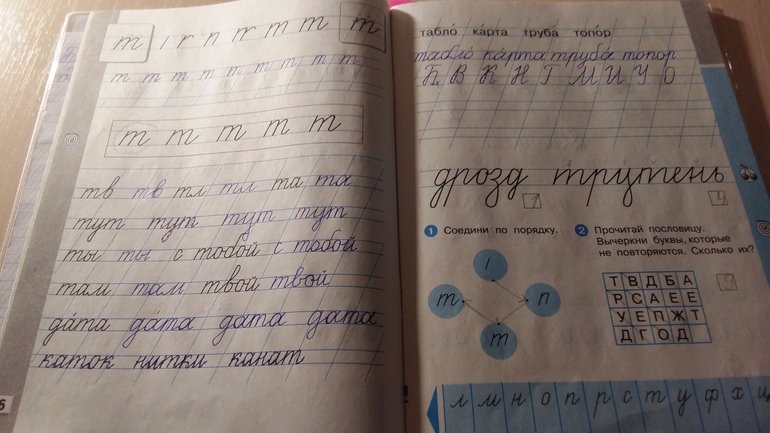 т г п т т т т
т т т т т т т т т
т т т т т
тв тв тл тл та та
тут тут тут тут
ты ты с тобой с тобой
там там твой твой
да́та да́та дата дата
каток нитки канат
6
табло́ ка́рта труба́ топо́р
табло́ ка́рта труба́ топор
Б В К Н Г М И У О
дрозд трутень
1 Соедини по порядку.
т п т
2 Прочитай пословицу.
Вычеркни буквы, которые
не повторяются. Сколько их?
Т В Д Б А
Р С А Е Е
У Е П Ж Т
Д Г О Д
л м н о п р с т у ф х ц